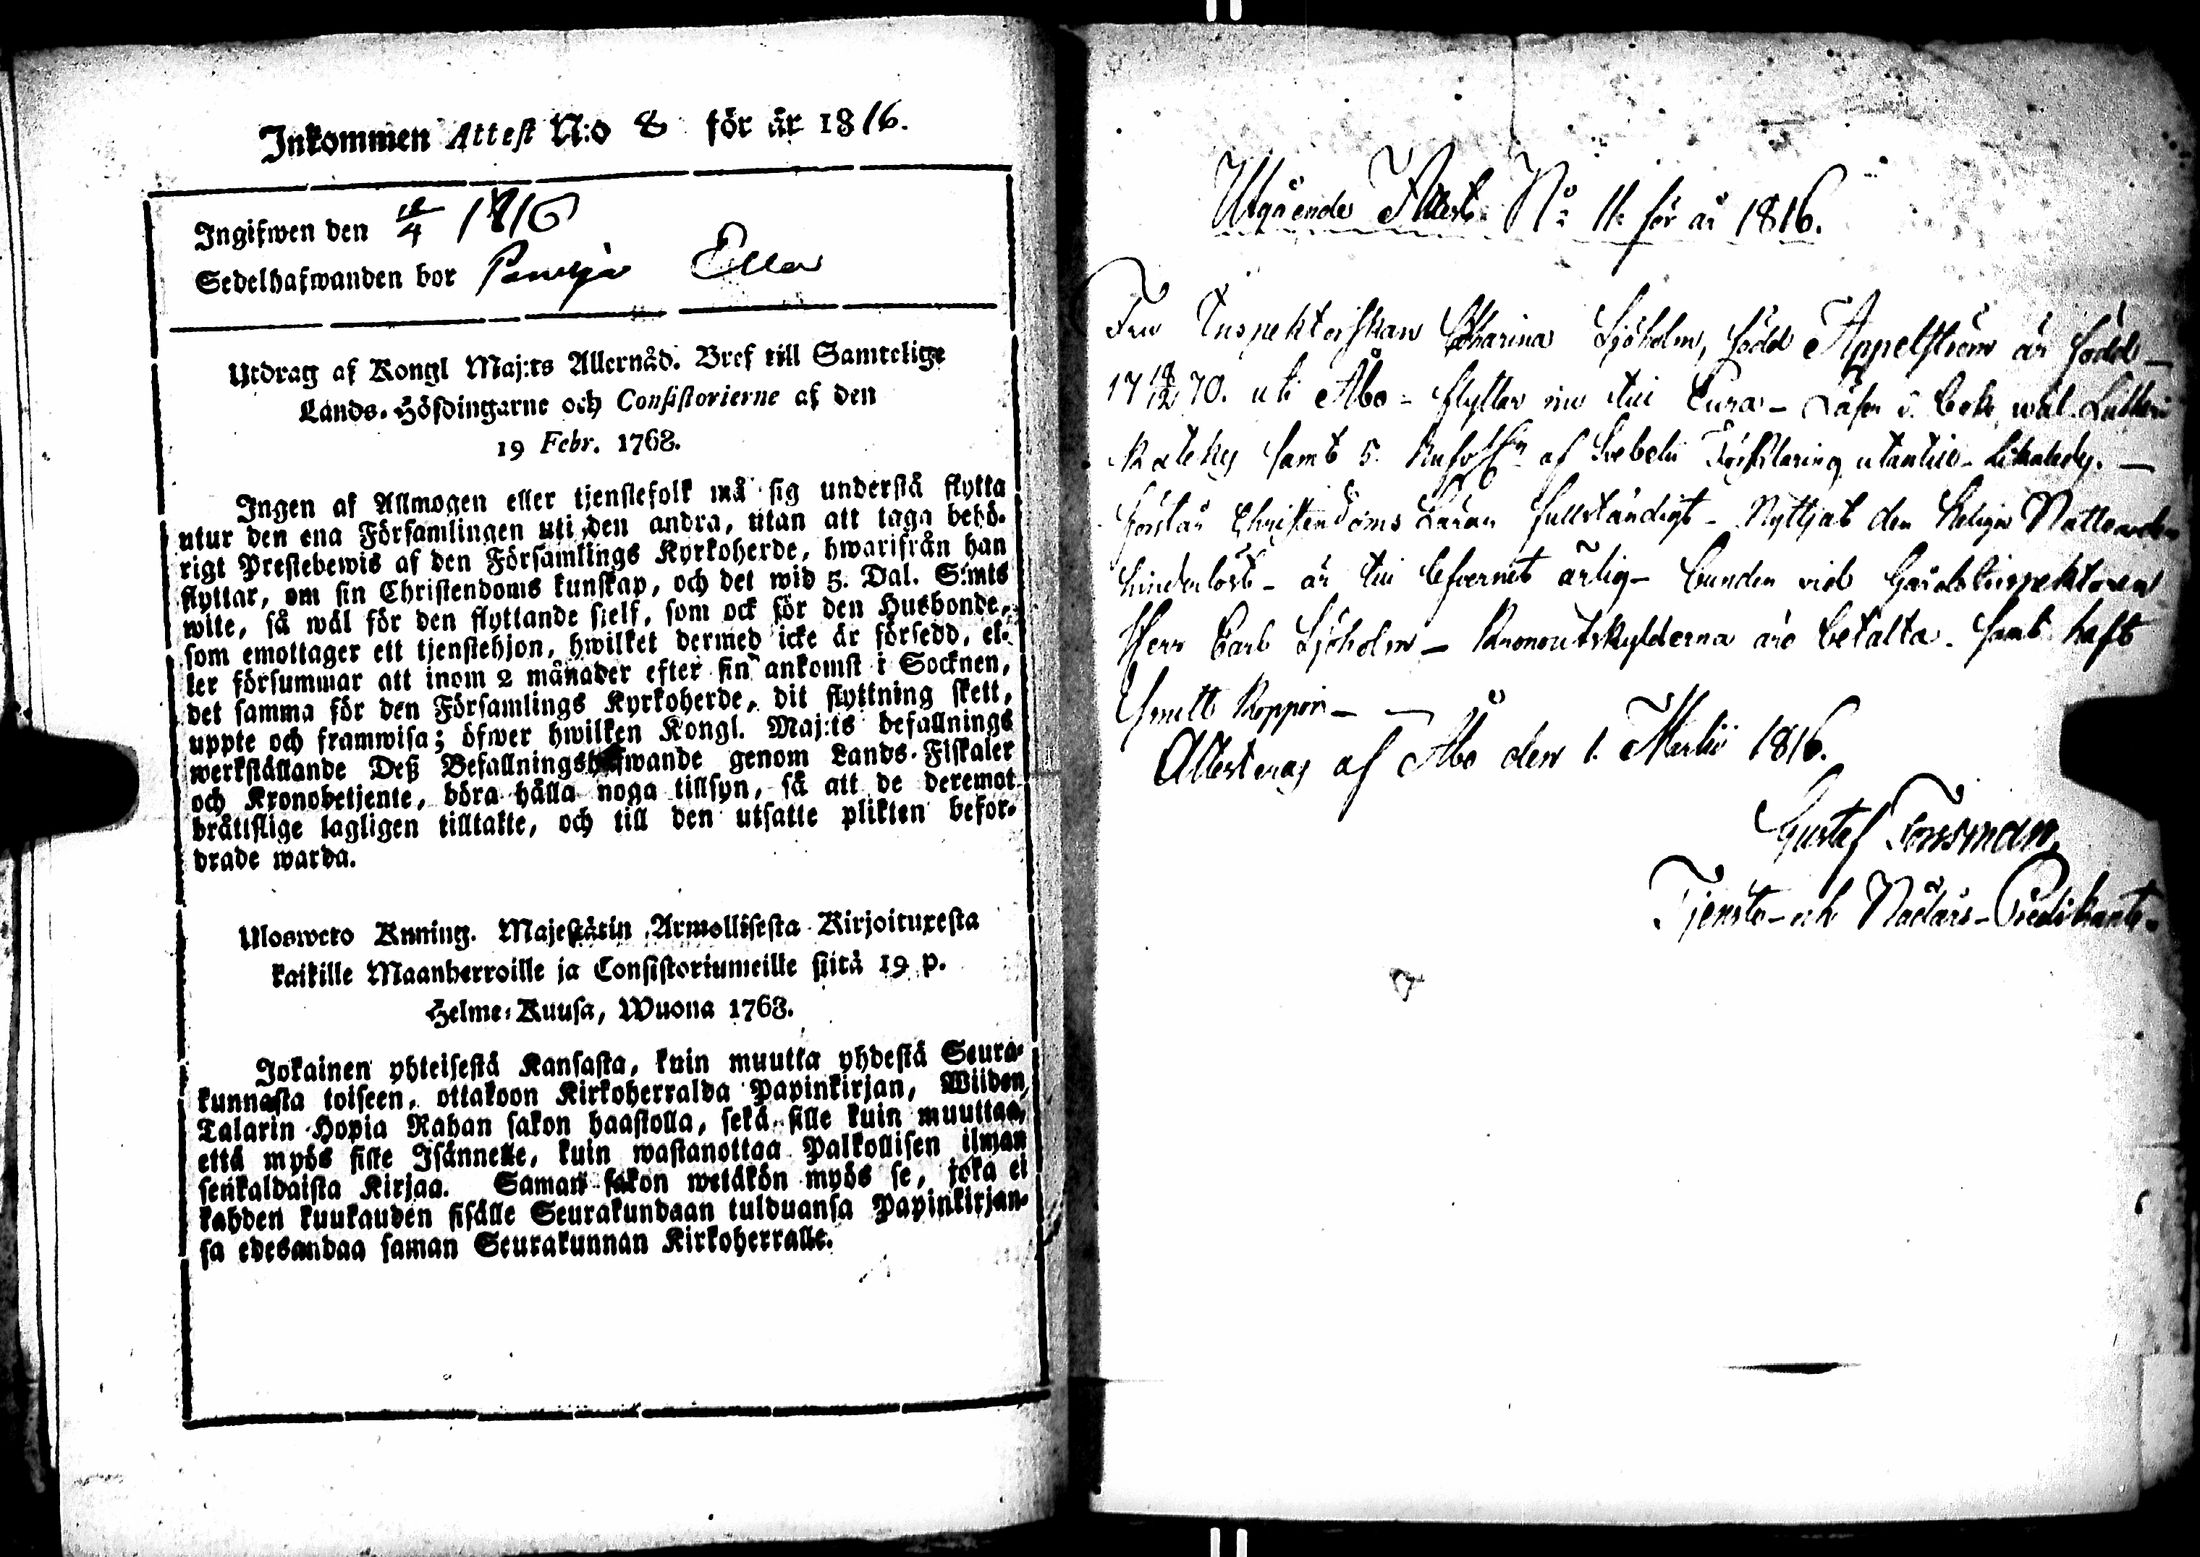 Inkommen Attest N:o 8 för år 1816.
Ingifwen den 12/4 1816
Sedelhafwanden bor
Utdrag af Kongl Maj:ts Allernåd. Bref till Samtelige
Lands-Höfdingarne och Consistorierne af den
19 Febr. 1768.
Ingen af Allmogen eller tjenstefolk må sig understå flytta
utur den ena Församlingen uti den andra, utan att taga behö-
rigt Prestebewis af den Församlings Kyrkoherde, hwarifrån han
flyttar, om sin Christendoms kunskap, och det wid 5. Dal. S:mts
wite, så wäl för den flyttande sjelf, som ock för den Husbonde,
som emottager ett tjenstehjon, hwilket dermed icke är försedd, el-
ler försummar att inom 2 månader efter sin ankomst i Socknen,
det samma för den Församlings Kyrkoherde, dit flyttning skett,
uppte och framwisa; öfwer hwilken Kongl. Maj:ts befallnings
werkställande Deß Befallningshafwande genom Lands-Fiskaler
och Kronobetjente, böra hålla noga tillsyn, så att de deremot
bråttslige lagligen tilltalte, och till den utsatte plikten befor-
drade warda.
Ulosweto Kuning. Majestätin Armollisesta Kirjoituxesta
kaikille Maanherroille ja Consistoriumeille siitä 19 p.
Helme-Kuusa, Wuona 1768.
Jokainen yhteisestä Kansasta, kuin muutta yhdestä Seura-
kunnasta toiseen, ottakoon Kirkoherralda Papinkirjan, Wiiden
Talarin Hopia Rahan sakon haastolla, sekä sille kuin muuttaa,
että myös sille Isännelle, kuin wastanottaa Palkollisen ilman
senkaldaista Kirjaa. Saman sakon wetäkön myös se, joka ei
kahden kuukauden sisälle Seurakundaan tulduansa Papinkirjan-
sa edesandaa saman Seurakunnan Kirkoherralle.
Utgående Attest N:o 11 för år 1816.
Fru Inspektorskan Catharina Sjöholm, född Appelström är född
17 18/12 70. uti Åbo - flyttar nu till Eura - Läser i bok wäl Lutheri
Kateky samt 5. af Svebelii Förklaring utantill
förstår Christendoms Läran fullständigt - Nyttjat den Heliga Nattvarden
hinderlöst - är till lefvernet ärlig - bunden vid Gårdsinspektoren
Herr Carl Sjöholm - Kronoutskylderna äro betalta. samt haft
Koppor -
Attesteras af Åbo den 1. Martii 1816.
Gustaf Forsman,
Tjenste- och Nådårs-Predikant.